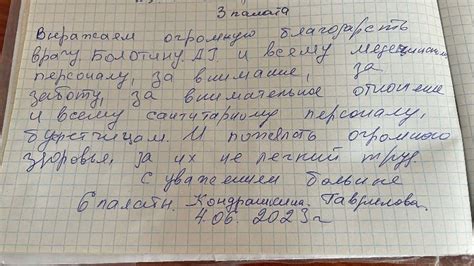 3 палата
Выражаем огромную благодарсть
врачу Болотину А.Г. и всему медецинском
персоналу, за внимание, за
заботу, за внимательное отношение
и всему санитарному персоналу,
буфетчицам. И пожелать огромного
здоровья, за их не легкий труд
с уважением больные
6 палаты. Кондрашкина. Гаврилова.
4.06. 2023г